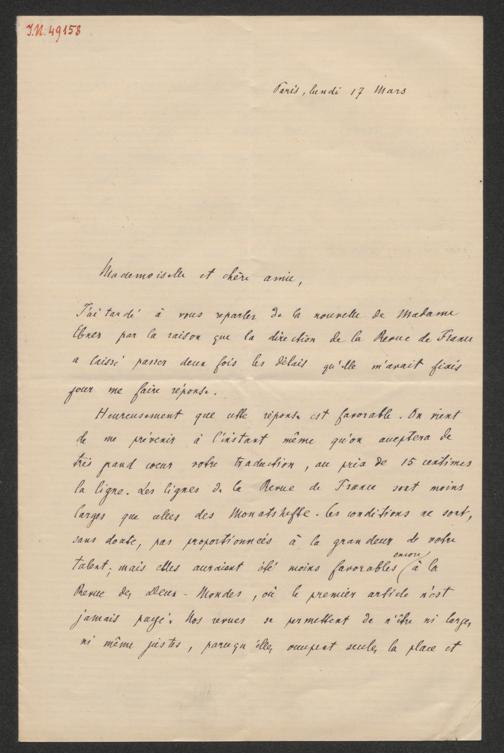 J.N. 49158
Paris, lundi 17 Mars
Mademoiselle et chère amie,
J'ai tardé à vous reparler de la nouvelle de Madame
Ebner par la raison que la direction de la Revue de France
a laissé passer deux fois les délais qu'elle m'avait fixés
pour me faire réponse.
Heureusement que cette réponse est favorable. On vient
de me prévenir à l'instant même qu'on acceptera de
très grand cœur votre traduction, au prix de 15 centimes
la ligne. Les lignes de la Revue de France sont moins
larges que celles des Monatshefte. Ces conditions ne sont,
sans doute, pas proportionnées à la grandeur de votre
talent; mais elles auraient été moins favorables encore à la
Revue des Deux-Mondes, où le premier article n'est
jamais payé. Nos revues se permettent de n'être ni larges,
ni même justes, parcequ'elles occupent seules la place et